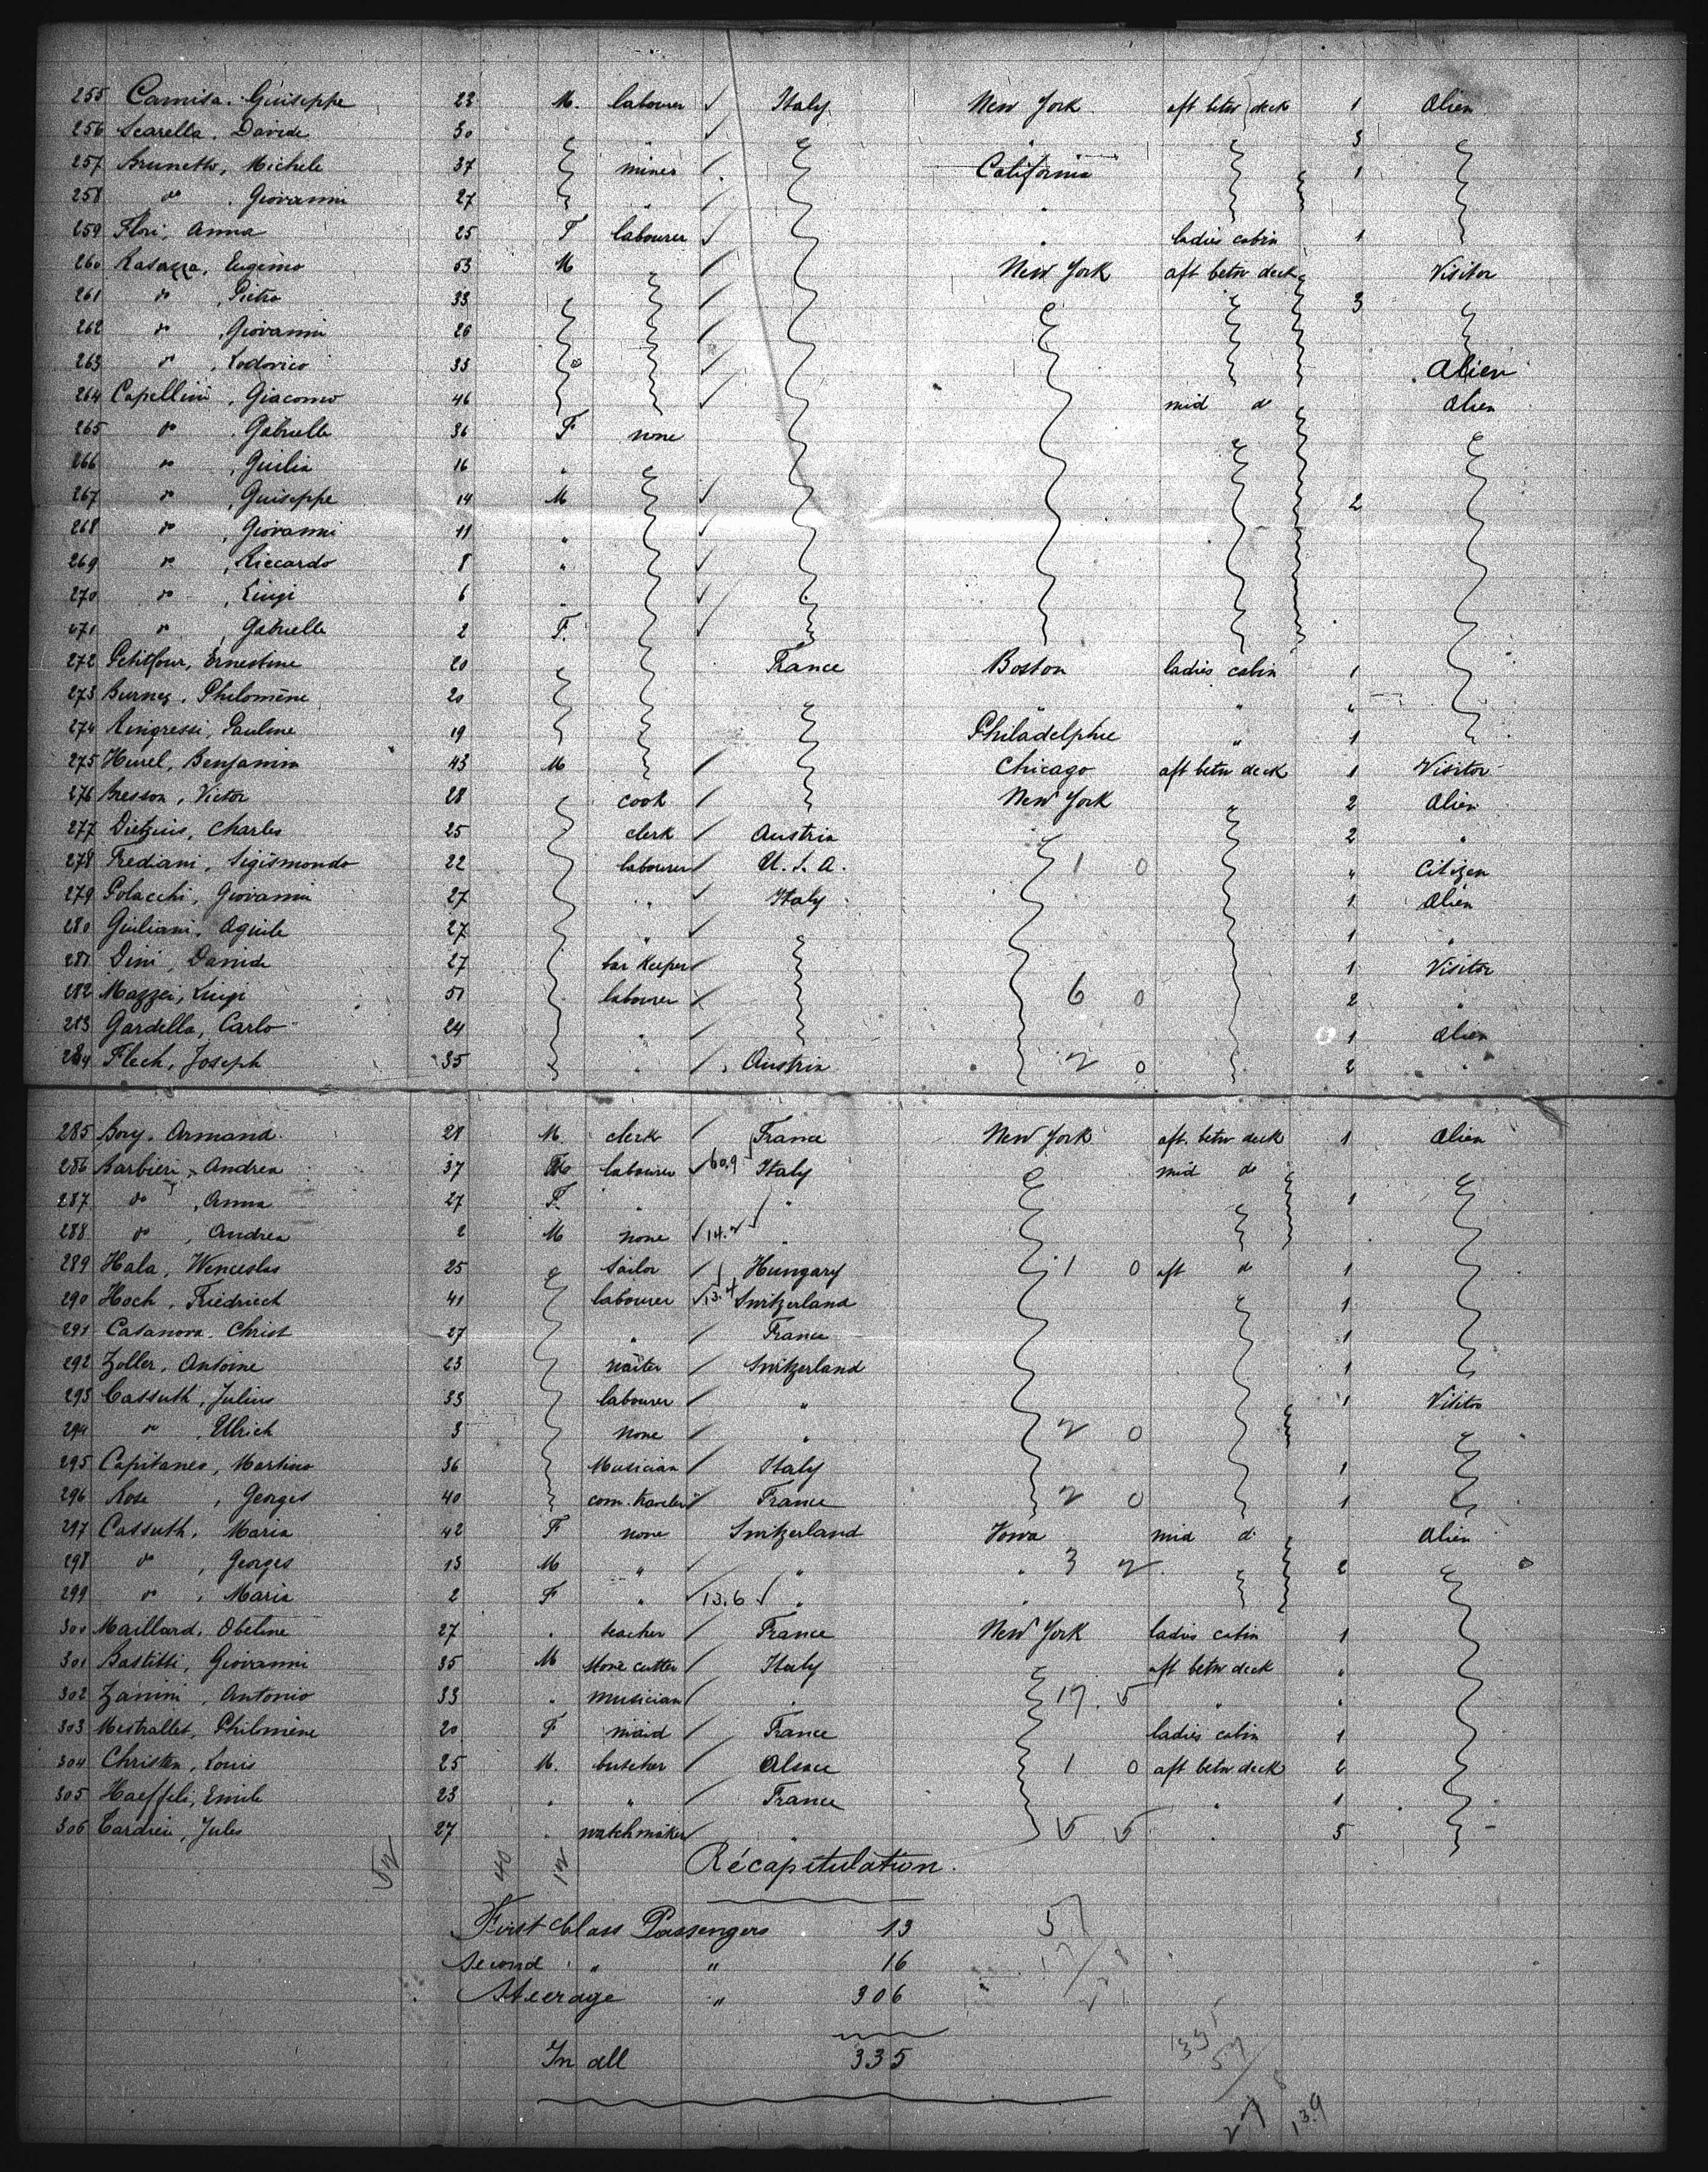 255 Camisa. Guiseppe 23 M. labourer ✓ Italy New York aft betw deck 1 Alien
256 Scarella. Davide 30 " ✓ " 3
257 Brunetto, Michele 37 miner California 1
258 do . Giovanni 27 " "
259 Flori, Anna 25 F labourer ✓ " ladies cabin 1
260 Rasazza, Eugenio 53 M New York aft betw deck Visitor
261 do , Pietro 33 3
262 do , Giovanni 26
263 do , Lodovico 33 Alien
264 Capellini , Giacomo 46 mid do Alien
265 do , Gabrielle 36 F none
266 do , Guilia 16 "
267 do , Guiseppe 14 M ✓ 2
268 do , Giovanni 11 " ✓
269 do , Riccardo 8 " ✓
270 do , Luigi 6 " ✓
271 do , Gabrielle 2 F. ✓
272 Petitfour, Ernestine 20 France Boston ladies cabin 1
273 Burnez, Philomène 20 " " "
274 Pauline 19 Philadelphie " 1
275 Hurel, Benjamin 43 M Chicago aft betw deck 1 Visitor
276 Bresson, Victor 28 cook New York 2 Alien
277 Charles 25 clerk Austria 2 "
278 Frediani, Sigismondo 22 labourer U. S. A. 1 0 " Citizen
279 Polacchi, Giovanni 27 " ✓ Italy 1 Alien
280 Giuliani, Aquile 27 " ✓ 1 "
281 Dini, Davide 27 bar keeper 1 Visitor
282 Mazzei, Luigi 51 labourer 6 0 2 "
283 Gardella, Carlo 24 " 1 Alien
284 Flech, Joseph 35 " Austria 2 0 2 "
285 Bory. Armand 28 M. clerk France New York aft. betw deck 1 Alien
286 Barbieri, Andrea 37 labourer ✓ 60,9 Italy mid do
287 do , Anna 27 F. " " 1
288 do , Andrea 2 M none ✓ 14.2 "
289 Hala, Wenceslas 25 Sailor Hungary 1 0 aft d 1
290 Hoch, Friedrich 41 labourer ✓ 13.4 Switzerland 1
291 Casanova. Christ 27 " France 1
292 Zoller, Antoine 23 waiter Switzerland 1
293 Cassuth, Julius 33 labourer " 1 Visitor
294 do , Ulrich 3 none " 2 0
295 Capitaneo, Martino 36 Musician Italy 1
296 Rose , Georges 40 com. traveler France 2 0 1
297 Cassuth, Maria 42 F none Switzerland Iowa mid d Alien
298 do , Georges 13 M " " " 3 2 2
299 do , Maria 2 F " ✓ 13.6 " "
300 Maillard, Obeline 27 " teacher France New York ladies cabin 1
301 Bastitti, Giovanni 35 M stone cutter Italy aft betw deck "
302 Zanini, Antonio 33 " musician " 17. 5 " "
303 Mestrallet, Philomène 20 F maid France ladies cabin 1
304 Christen, Louis 25 M. butcher Alsace 1 0 aft betw deck 2
305 Haeffeli, Emile 23 " " France " 1
306 Jules 27 " watchmaker " 5 5 " 5
52 40 12
Récapitulation.
First Class Passengers 13
Second " " 16
Steerage " 306
In all 335
57
139